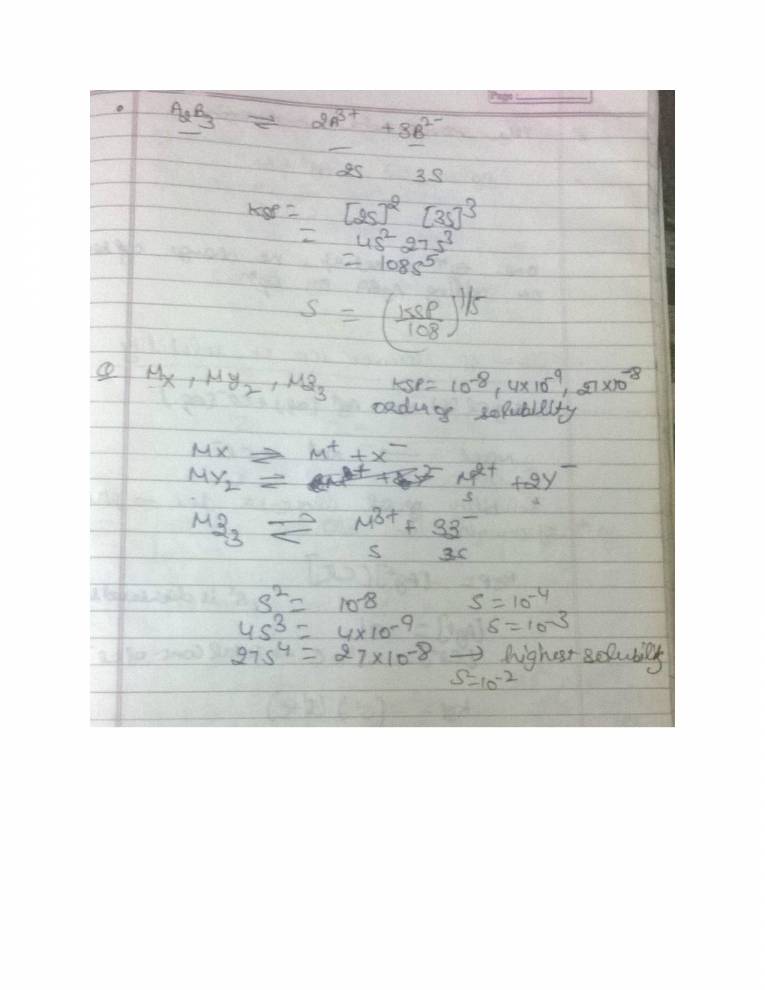 Page:
• A2B3 ⇌ 2A³⁺ + 3B²⁻
2S 3S
KSP = [2S]² [3S]³
= 4S² 27S³
= 108S⁵
S = (KSP/108)^1/5
Q MX, MY2, MZ3 KSP = 10⁻⁸, 4×10⁻⁹, 27×10⁻⁸
order of solubility
MX ⇌ M⁺ + X⁻
MY2 ⇌ M²⁺ + 2Y⁻
S S
MZ3 ⇌ M³⁺ + 3Z⁻
S 3S
S² = 10⁻⁸ S = 10⁻⁴
4S³ = 4×10⁻⁹ S = 10⁻³
27S⁴ = 27×10⁻⁸ → highest solubility
S = 10⁻²